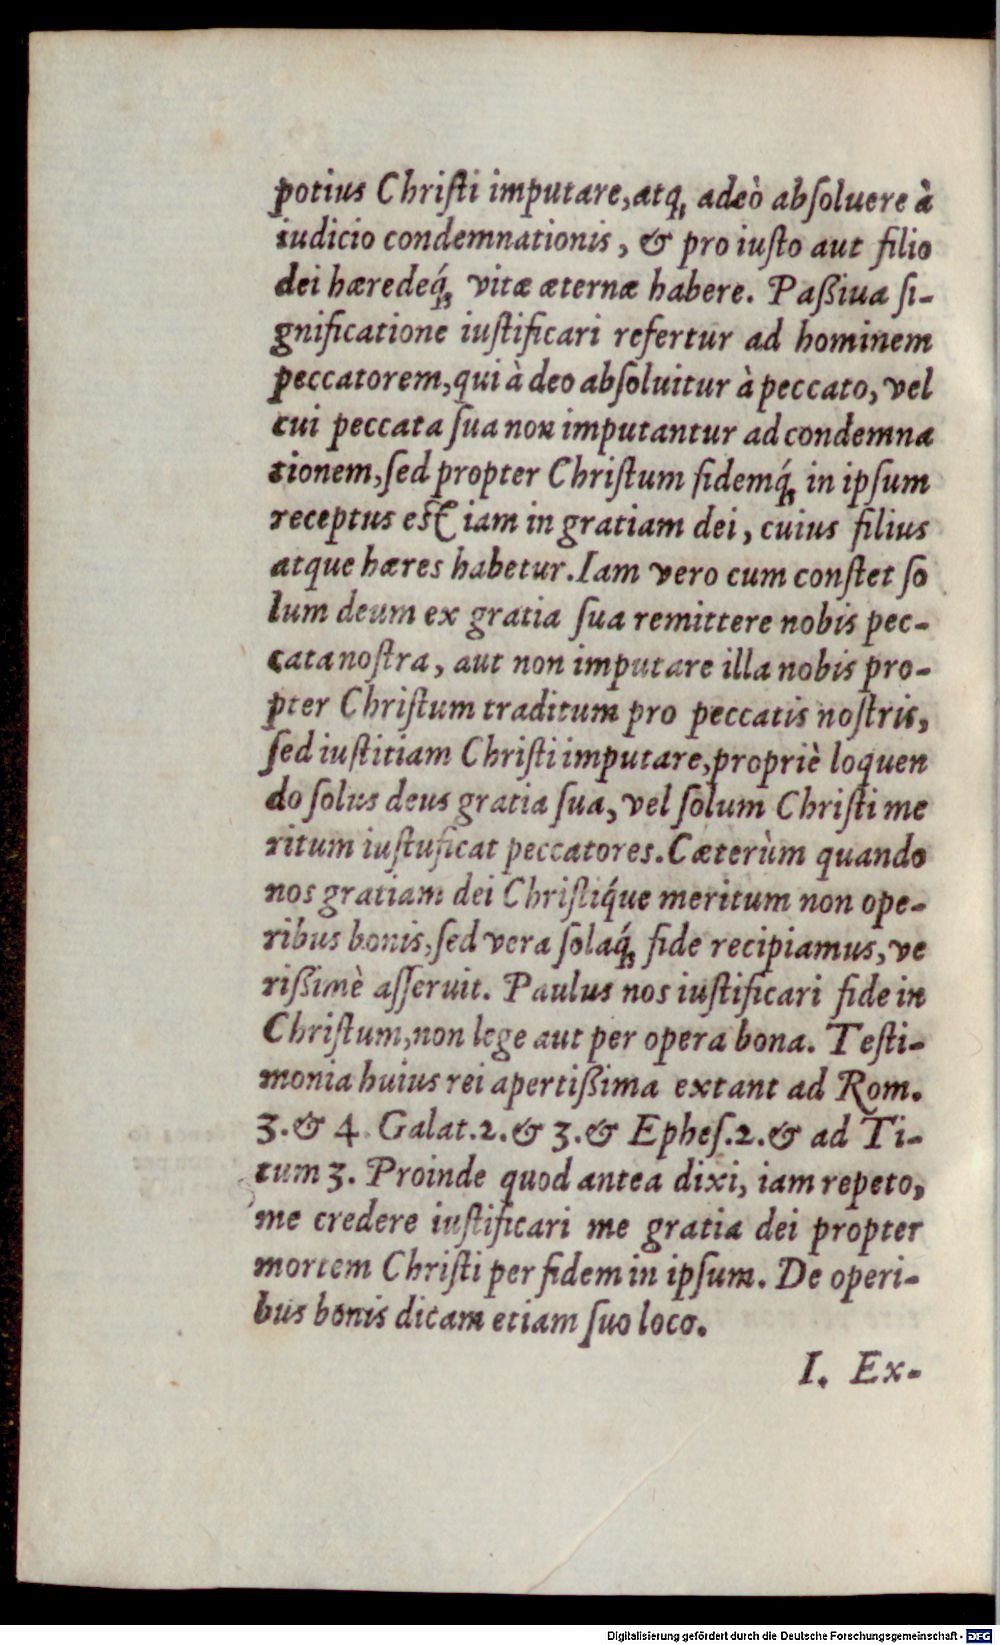 potius Chriſti imputare,atq; adeò abſoluere à
iudicio condemnationis, & pro iuſto aut filio
dei hæredeq́; vitæ æternæ habere. Paßiua ſi-
gnificatione iuſtificari refertur ad hominem
peccatorem,qui à deo abſoluitur à peccato, vel
cui peccata ſua non imputantur ad condemna
tionem,ſed propter Chriſtum fidemq́; in ipſum
receptus eſt iam in gratiam dei, cuius filius
atque hæres habetur.Iam vero cum conſtet ſo
lum deum ex gratia ſua remittere nobis pec-
cata noſtra, aut non imputare illa nobis pro-
pter Chriſtum traditum pro peccatis noſtris,
ſed iuſtitiam Chriſti imputare,propriè loquen
do ſolus deus gratia ſua, vel ſolum Chriſti me
ritum iuſtuficat peccatores.Cæterùm quando
nos gratiam dei Chriſtiq́ue meritum non ope-
ribus bonis,ſed vera ſolaq́; fide recipiamus,ve
rißimè aſſeruit. Paulus nos iuſtificari fide in
Chriſtum,non lege aut per opera bona. Teſti-
monia huius rei apertißima extant ad Rom.
3.& 4 Galat.2.& 3.& Epheſ.2.& ad Ti-
tum 3. Proinde quod antea dixi, iam repeto,
me credere iuſtificari me gratia dei propter
mortem Chriſti per fidem in ipſum. De operi-
bus bonis dicam etiam ſuo loco.
I. Ex-
Digitalisierung gefördert durch die Deutsche Forschungsgemeinschaft - DFG